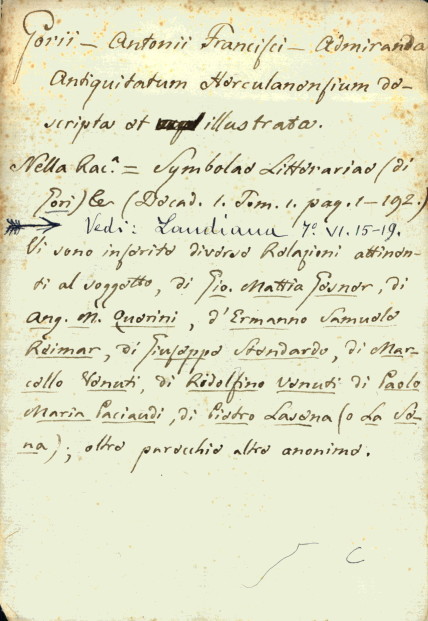 Gorii – Antonii Francisci – Admiranda
Antiquitatum Herculanensium de-
scripta et illustrata.
Nella Rac.ª = Symbolae Litterariae (di
Gori) & (Decad. 1. Tom. 1. pag. 1-192.)
Vedi: Landiana 7º VI. 15-19.
Vi sono inserite diverse Relazioni attinen-
ti al soggetto, di Gio. Mattia Gesner, di
Ang. M. Querini, d'Ermanno Samuele
Reimar, di Giuseppe Stendardo, di Mar-
cello Venuti, di Ridolfino Venuti di Paolo
Maria Paciaudi, di Pietro Lasena (o La Se-
na); oltre parecchie altre anonime.